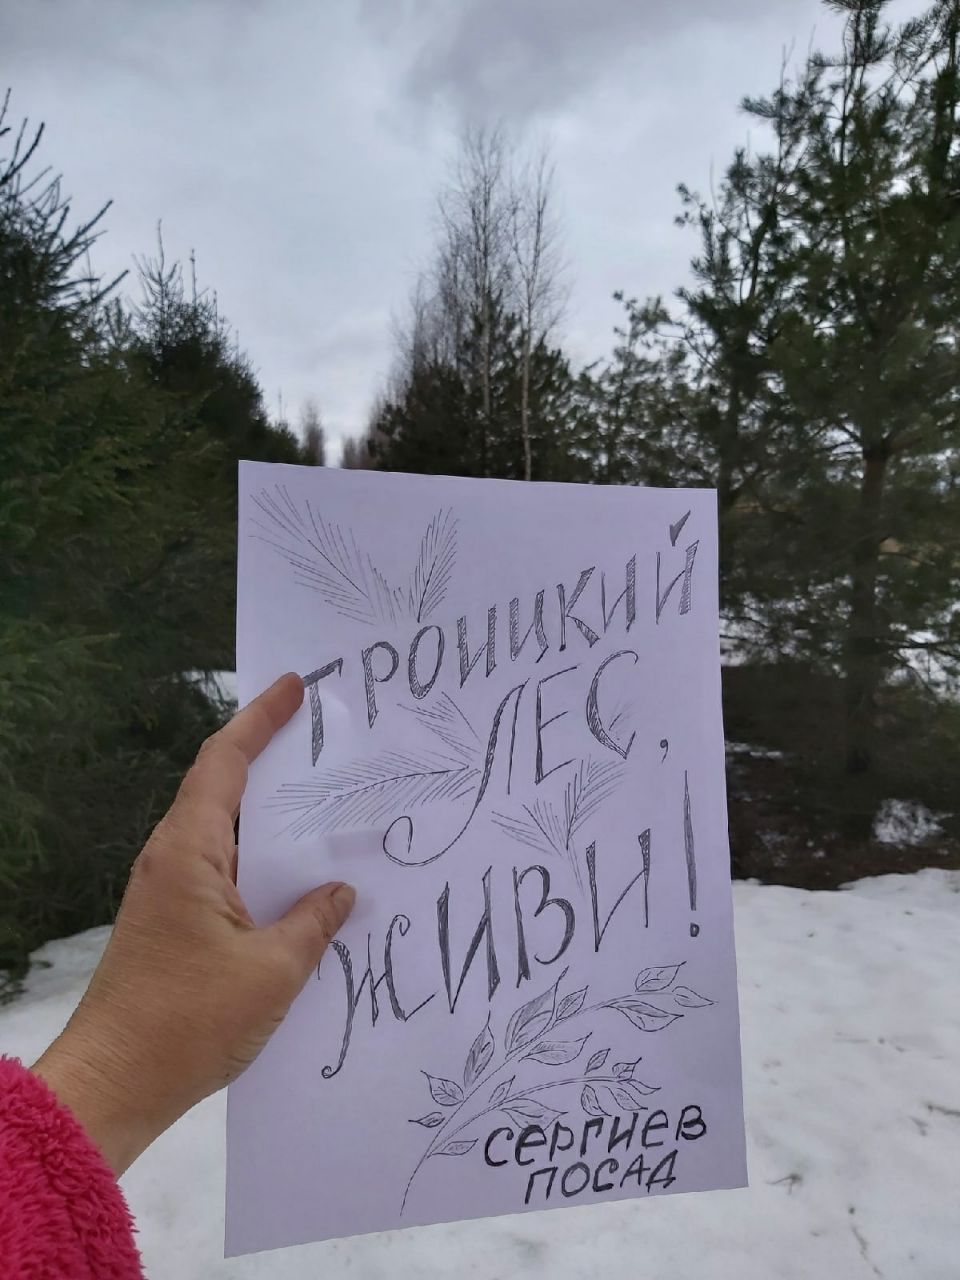 ТРОИЦКИЙ
ЛЕС,
ЖИВИ!
СЕРГИЕВ
ПОСАД